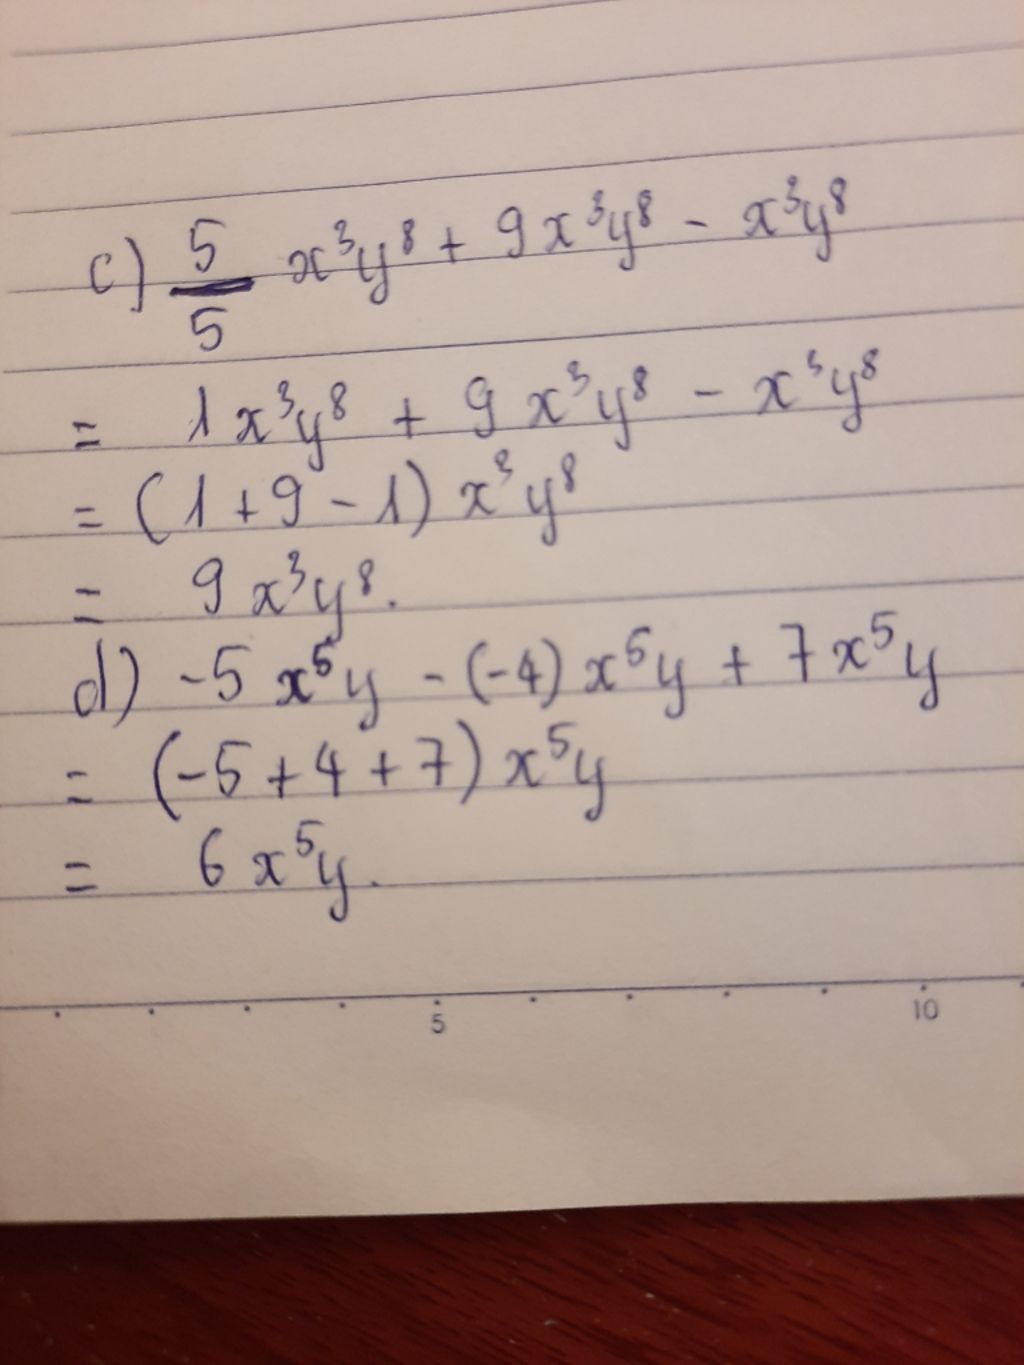 c) 5/5 x³y⁸ + 9x³y⁸ - x³y⁸
= 1x³y⁸ + 9x³y⁸ - x³y⁸
= (1+9-1) x³y⁸
= 9x³y⁸.
d) -5x⁵y - (-4)x⁵y + 7x⁵y
= (-5+4+7)x⁵y
= 6x⁵y.
5 10